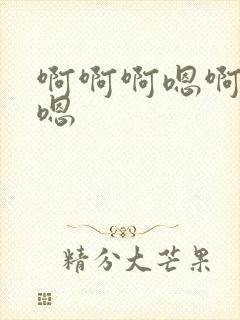 啊啊啊嗯啊
嗯
精分大芒果